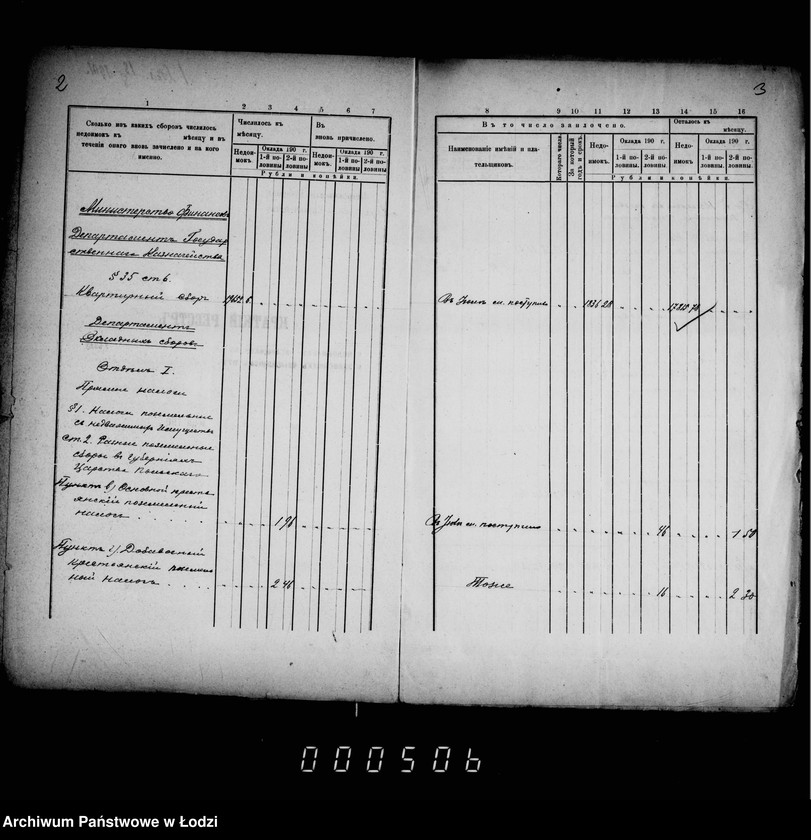 2
1
2 3 4 5 6 7
Сколько изъ какихъ сборовъ числилось
недоимокъ къ мѣсяцу и въ
теченіи онаго вновь зачислено и на кого
именно.
Числилось къ
мѣсяцу.
Въ
вновь причислено.
Недоимокъ.
Оклада 190 г.
1-й половины
2-й половины
Недоимокъ.
Оклада 190 г.
1-й половины
2-й половины
Рубли и копѣйки.
Министерство Финансовъ
Департаментъ Государ
ственнаго Казначейства
§ 35 ст 6.
Квартирный сборъ
Департаментъ
Окладныхъ сборовъ
Отдѣлъ I.
Прямые налоги
§ 1. Налоги поземельные
съ недвижимыхъ имуществъ
Ст. 2. Разные поземельные
сборы въ губерніяхъ
Царства Польскаго
Пунктъ в) Основной кресть
янскій поземельный
налогъ . . . . . 1 96
Пунктъ г) Добавочный
крестьянскій поземель
ный налогъ . . . . 2 46
3
8 9 10 11 12 13 14 15 16
Въ то число заплочено.
Осталось къ
мѣсяцу.
Наименованіе имѣній и плательщиковъ.
Котораго числа
За который годъ и срокъ.
Недоимокъ.
Оклада 190 г.
1-й половины
2-й половины
Недоимокъ.
Оклада 190 г.
1-й половины
2-й половины
Рубли и копѣйки.
поступило . . 1836 28
поступило 46 1 50
Тоже 16 2 30
000506
Archiwum Państwowe w Łodzi